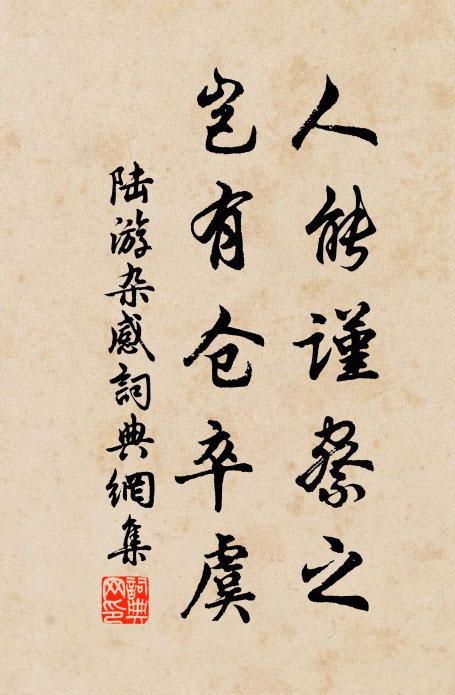 人能谨察之
岂有仓卒虞
陆游杂感詞典網集
詞典网印